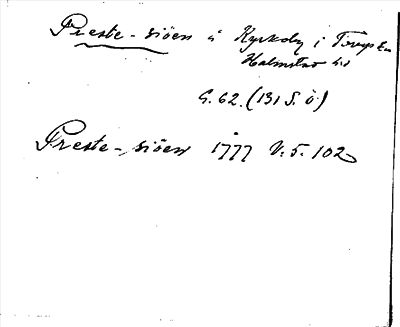 Preste-siöen å Kyrkoby i Torups sn
Halmstad hd
G. 62. (131 S. Ö.)
Preste-siöen 1777 V. 5. 102